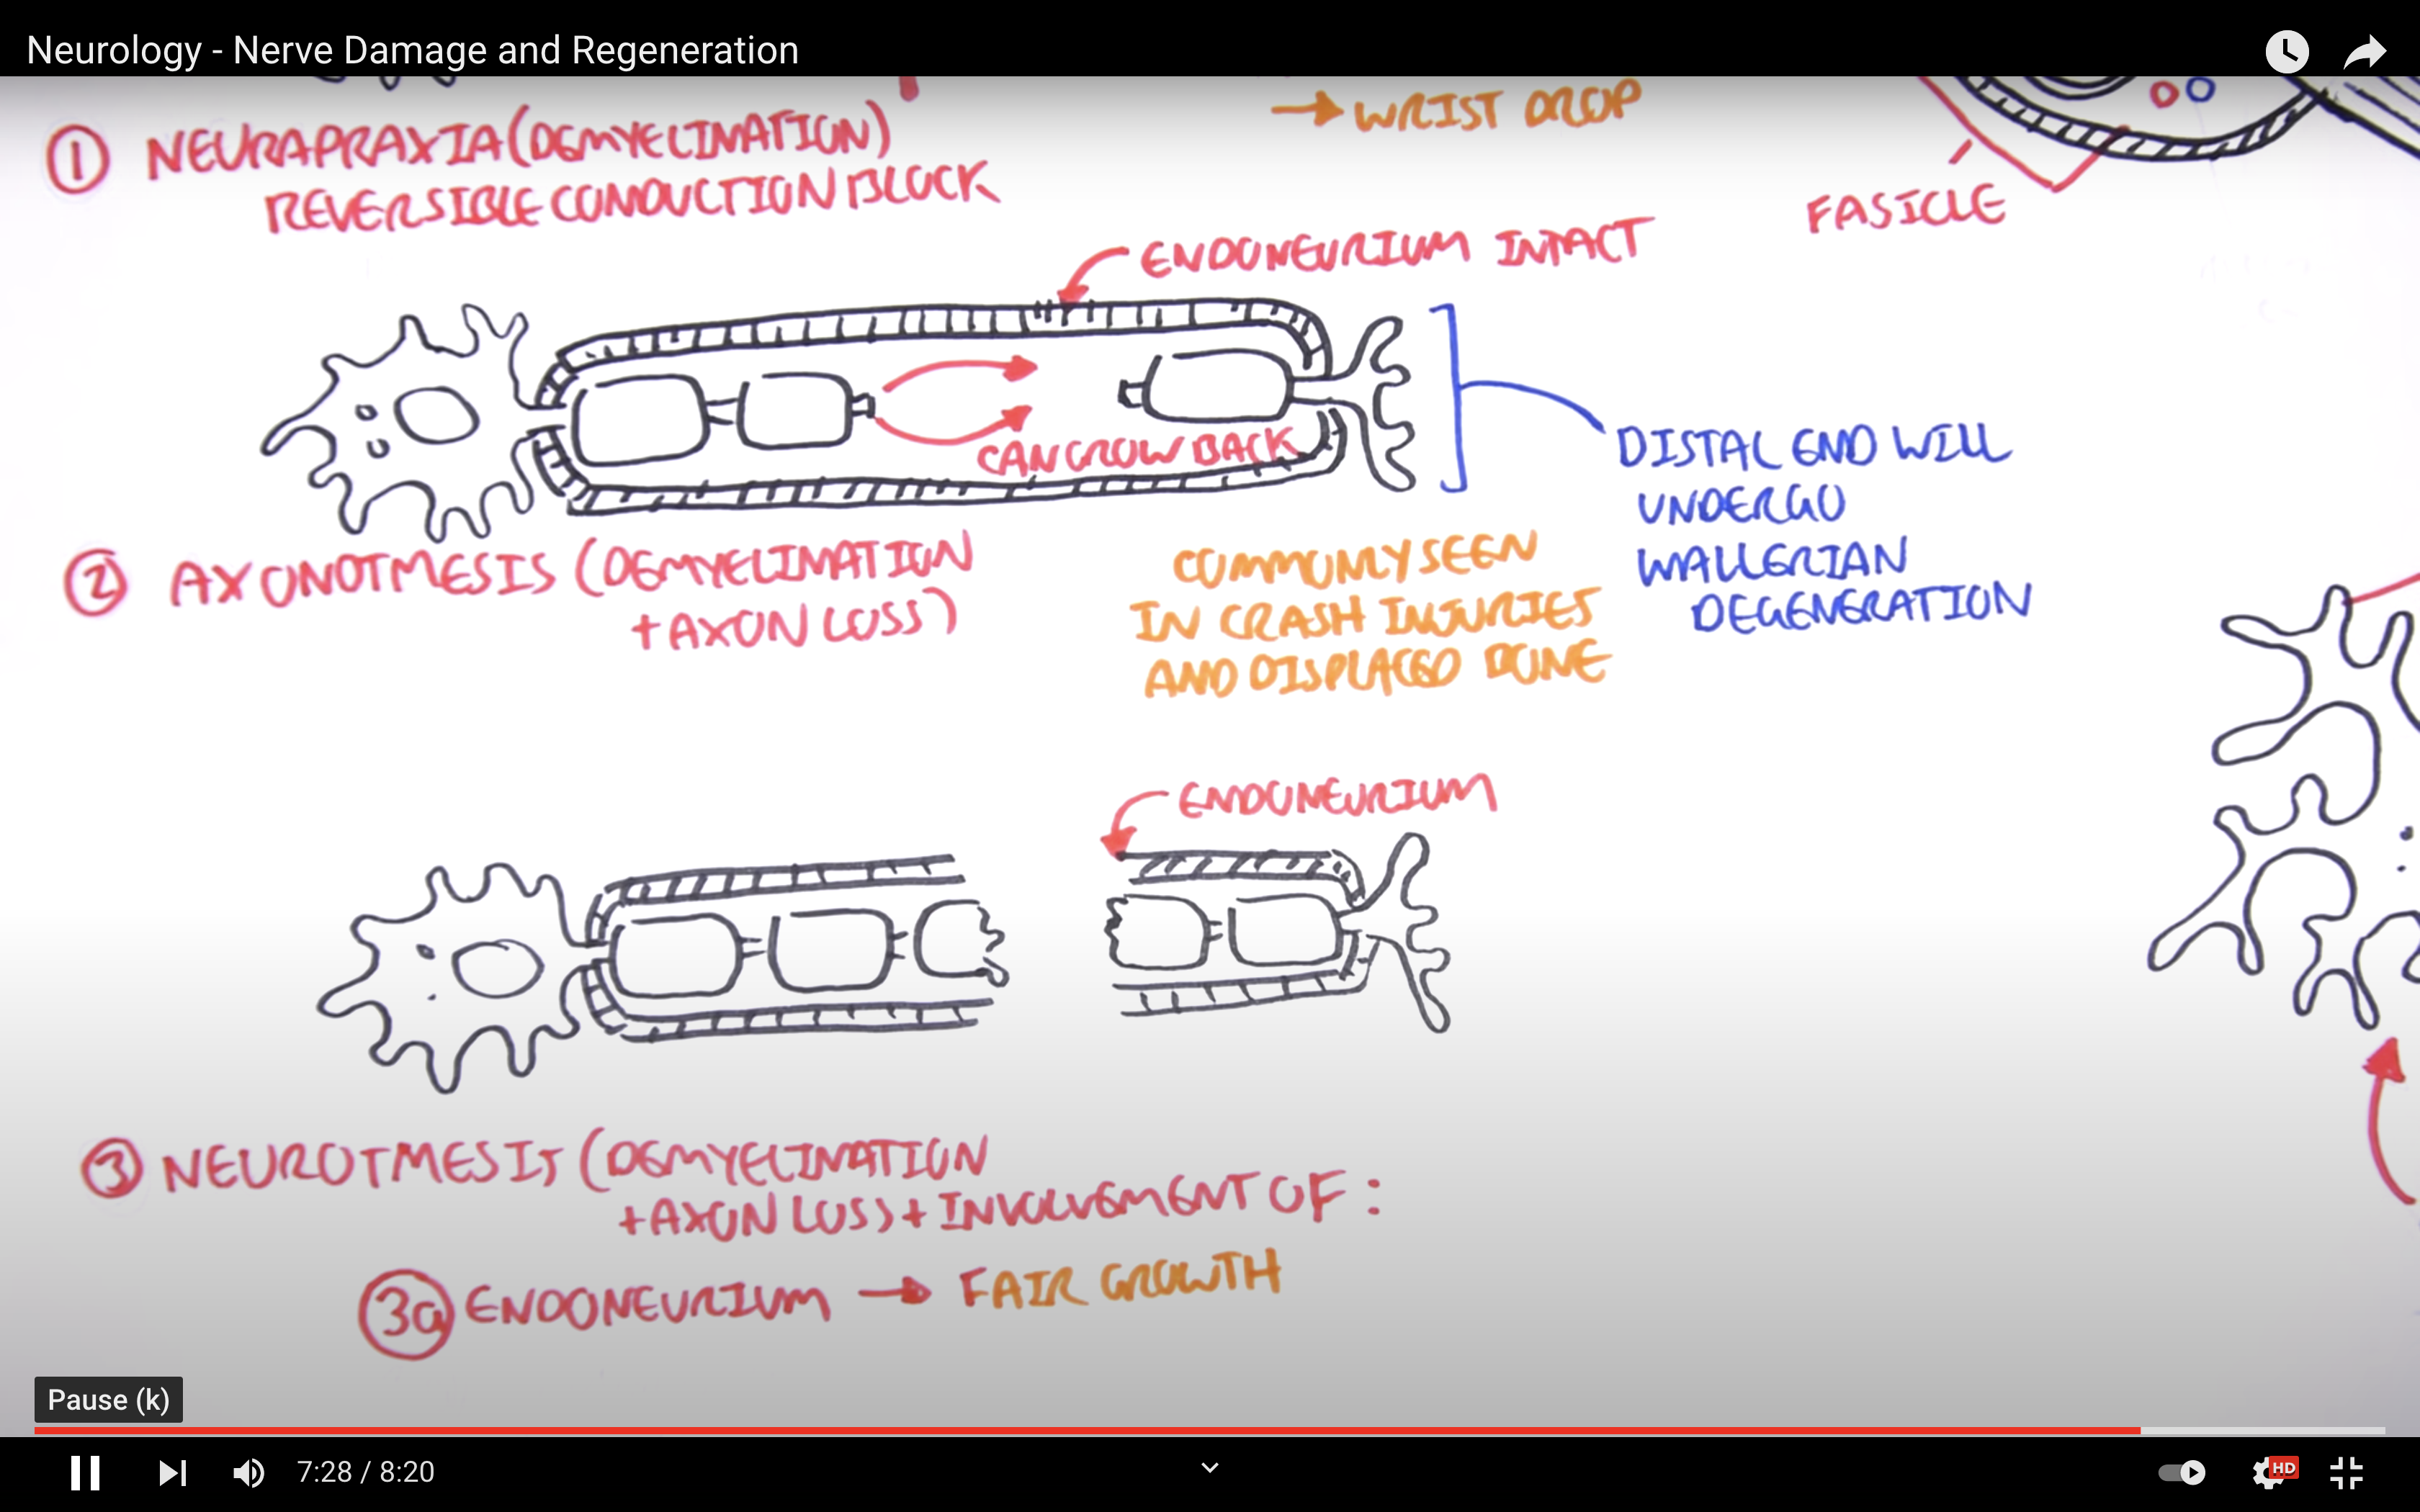 Neurology - Nerve Damage and Regeneration
→ WRIST DROP
① NEURAPRAXIA (DEMYELINATION)
REVERSIBLE CONDUCTION BLOCK
FASICLE
ENDONEURIUM INTACT
CAN GROW BACK
DISTAL END WILL
UNDERGO
WALLERIAN
DEGENERATION
② AXONOTMESIS (DEMYELINATION
+ AXON LOSS)
COMMONLY SEEN
IN CRASH INJURIES
AND DISPLACED BONE
ENDONEURIUM
③ NEUROTMESIS (DEMYELINATION
+ AXON LOSS) + INVOLVEMENT OF :
3a ENDONEURIUM → FAIR GROWTH
Pause (k)
7:28 / 8:20
HD